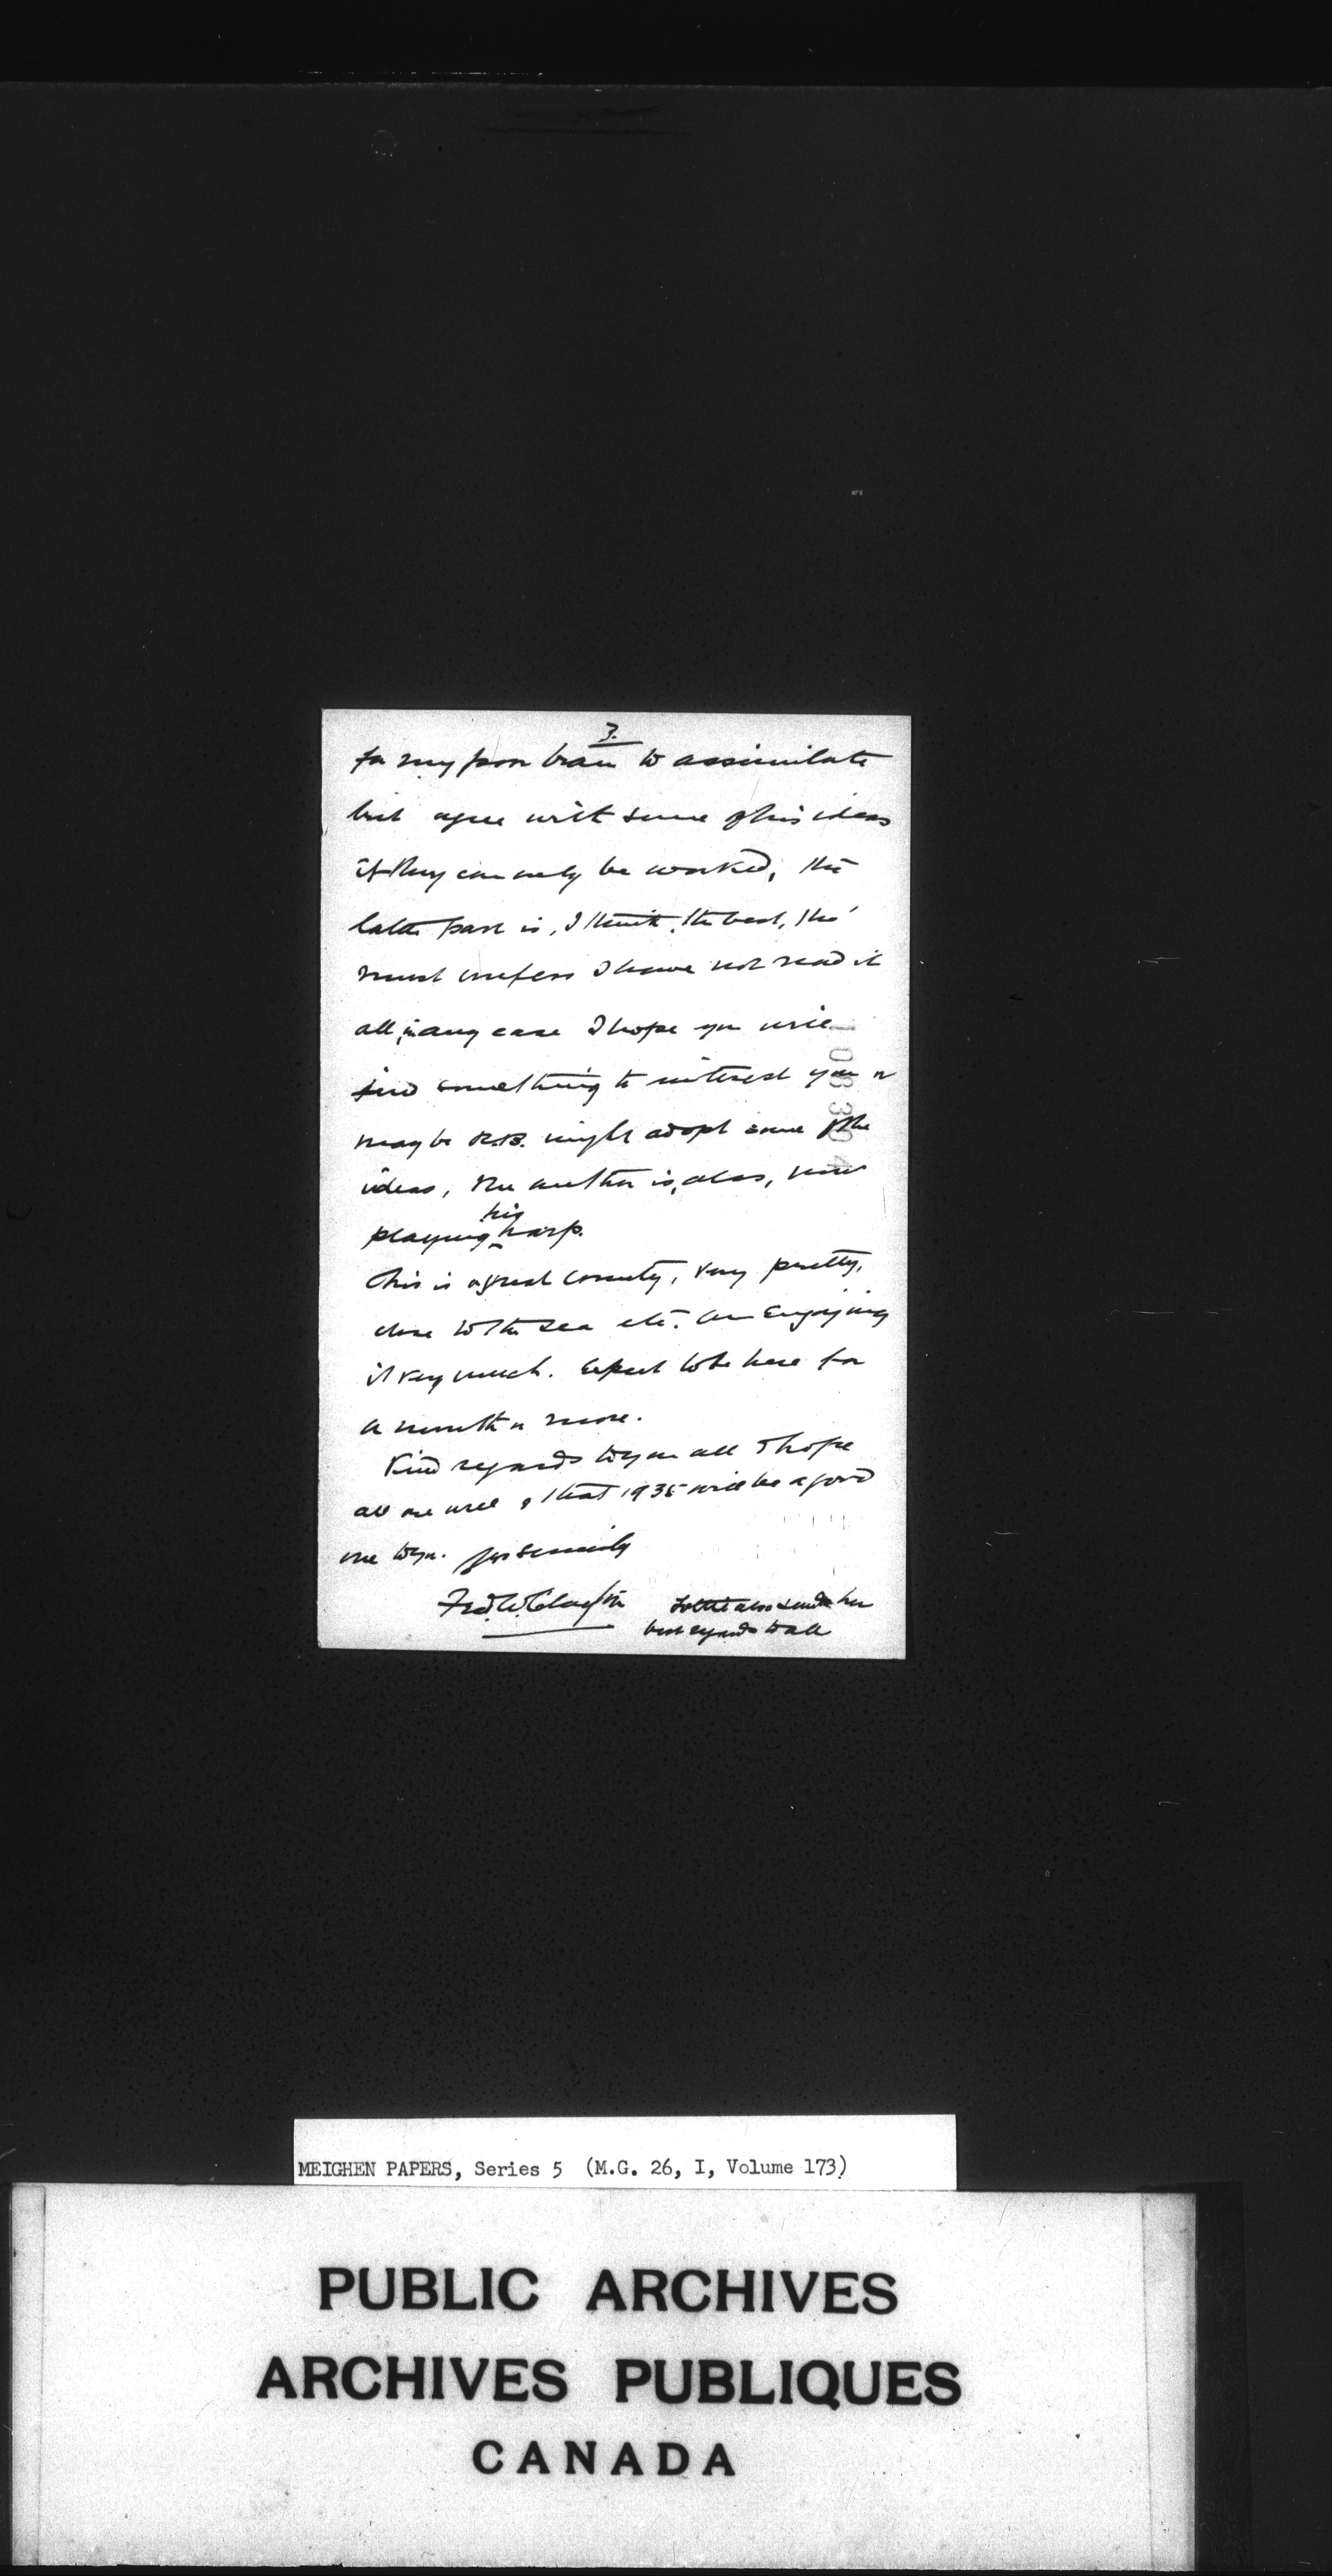 3.
for my poor brain to assimilate
but agree with some of his ideas
if they can only be worked, the
latter part is, I think, the best, tho'
must confess I have not read it
all, in any case I hope you will
find something to interest you or
maybe R.B. might adopt some of the
ideas, the author is, alas, now
playing his harp.
This is a great country, very pretty,
close to the sea etc. am enjoying
it very much. Expect to be here for
a month or more.
Kind regards to you all & hope
all are well & that 1935 will be a good
one to you. Yrs sincerely
Fred. W. Clayton
Lottie also sends her
best regards to all
108304
MEIGHEN PAPERS, Series 5 (M.G. 26, I, Volume 173)
PUBLIC ARCHIVES
ARCHIVES PUBLIQUES
CANADA